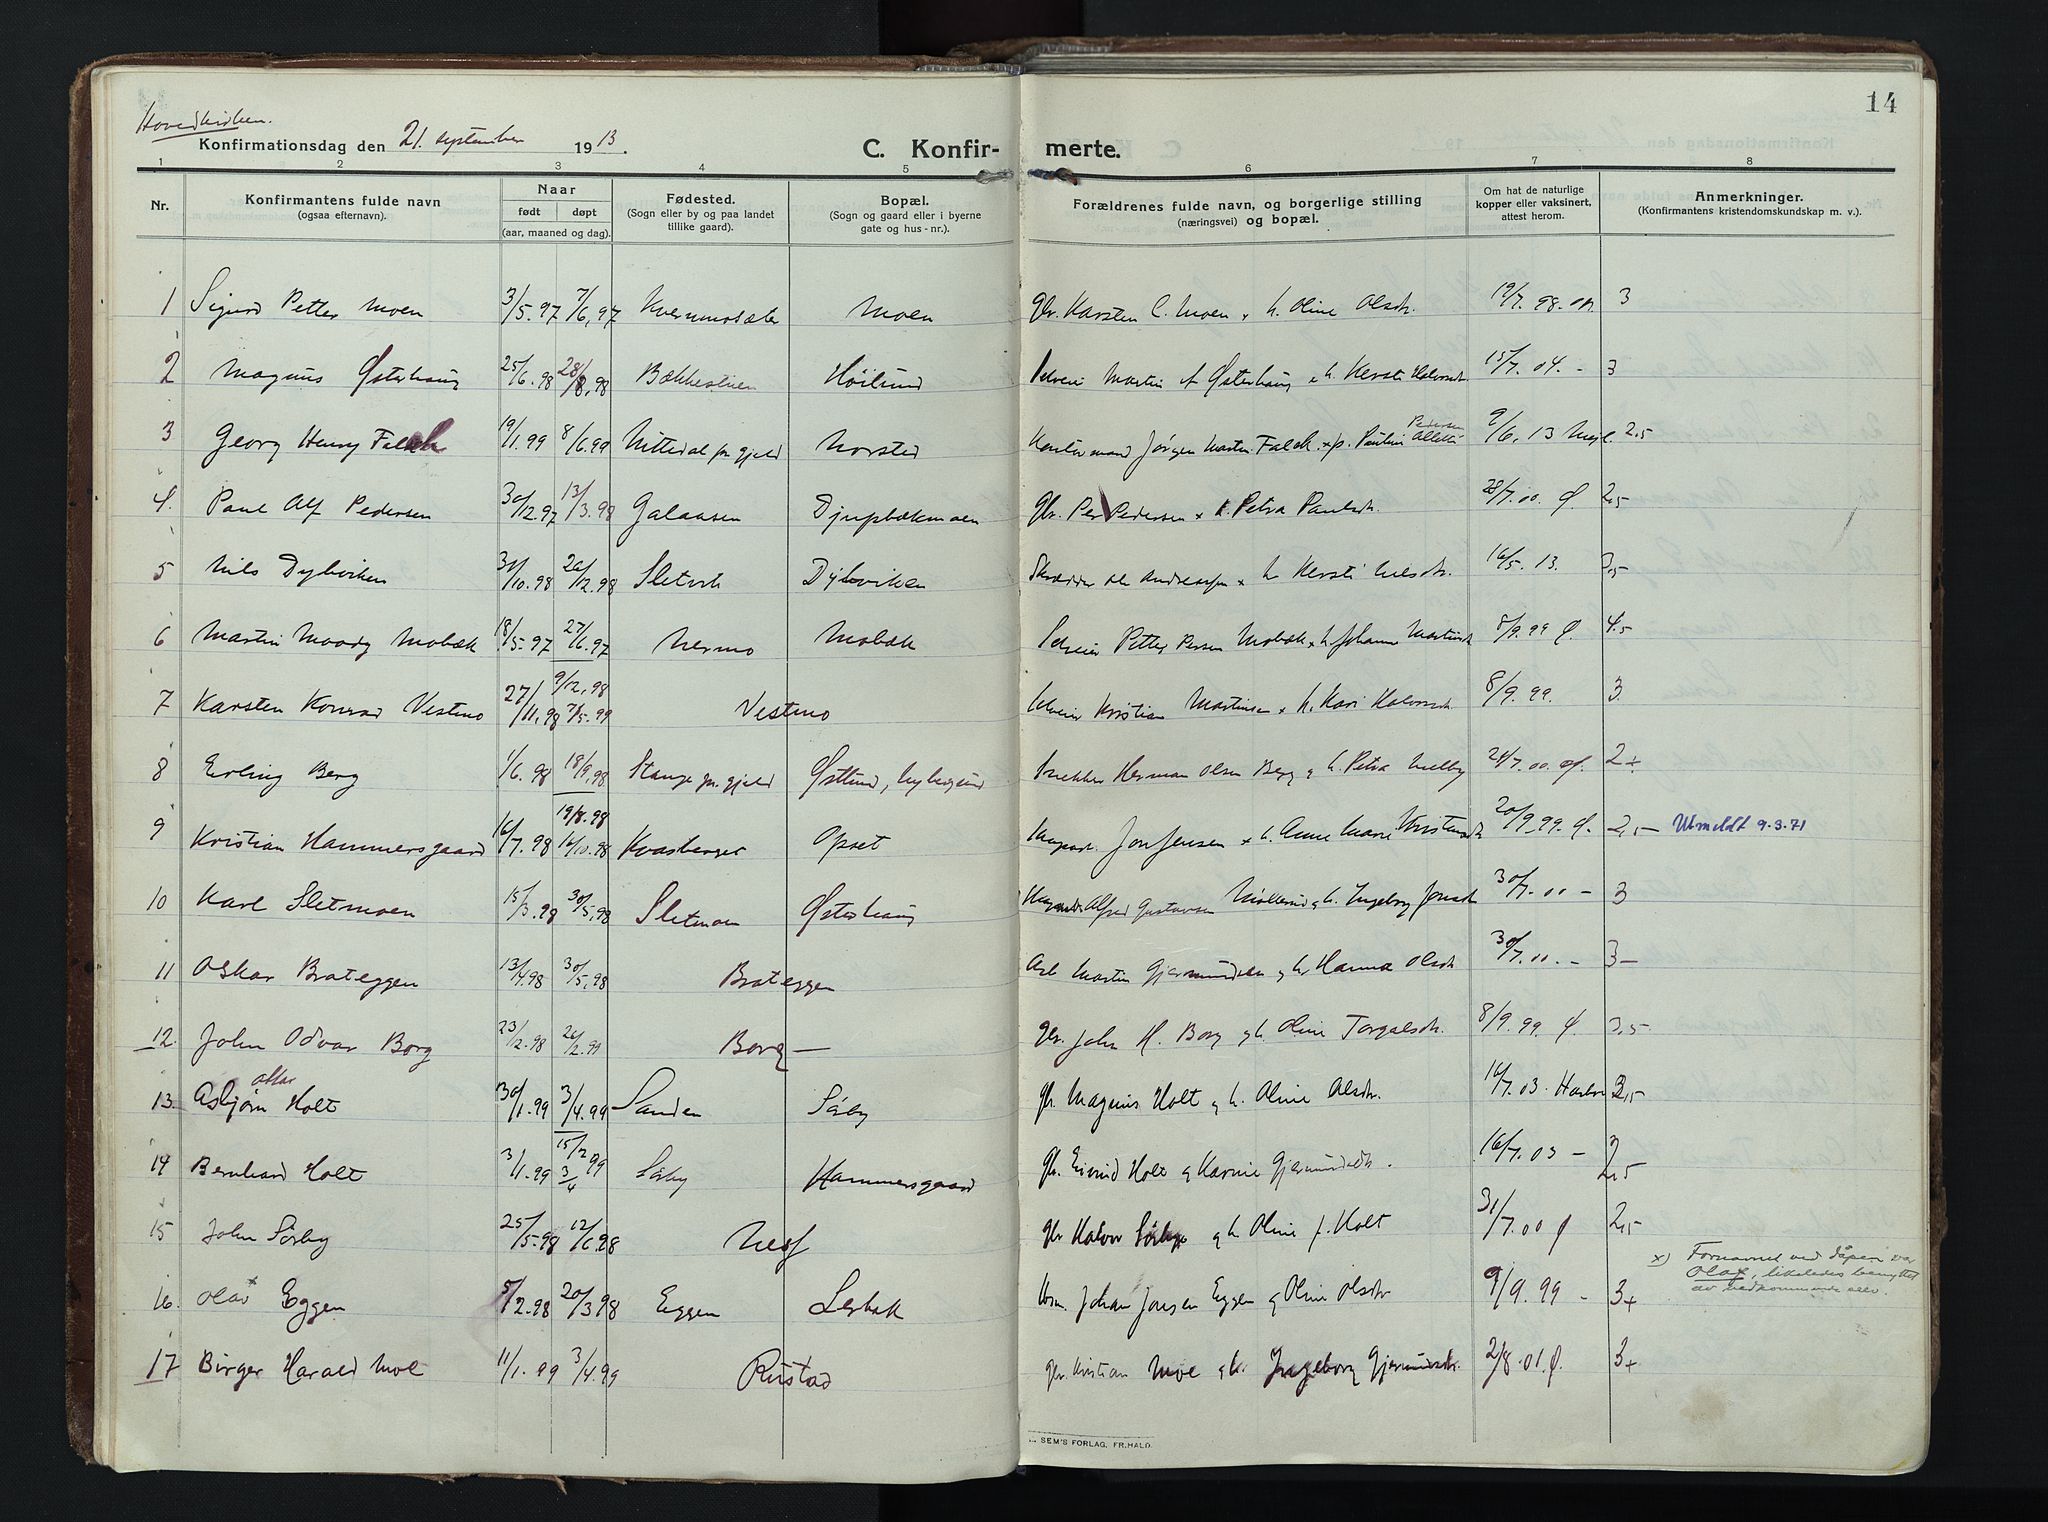 14
Hovedkirken.
Konfirmationsdag den 21. september 1913.
C. Konfirmerte.
1 2 3 4 5 6 7 8
Nr. Konfirmantens fulde navn (ogsaa efternavn). Naar født døpt (aar, maaned og dag). Fødested. (Sogn eller by og paa landet tillike gaard). Bopæl. (Sogn og gaard eller i byerne gate og hus-nr.). Forældrenes fulde navn, og borgerlige stilling (næringsvei) og bopæl. Om hat de naturlige kopper eller vaksinert, attest herom. Anmerkninger. (Konfirmantens kristendomskundskap m. v.).
1 Sigurd Petter Moen 3/5.97 7/6.97 Kvernmosæter Moen Gbr. Karsten C. Moen & h. Oline Olsdtr. 19/7.98. 3
2 Magnus Østerhaug 25/6.98 28/8.98 Bækkestuen Høilund Selveier Martin Østerhaug & h. Kersti Halvorsdtr. 15/7.04. - 3
3 Georg Henry Falck 19/1.99 8/6.99 Nittedal pr.gjeld Morsted Kontormand Jørgen Martin Falck & p. Pauline Pedersen 9/6.13 2,5
4. Paul Alf Pedersen 30/12.97 13/3.98 Galaasen Djupbækmoen Gbr. Per Pedersen & h. Petra Paulsdtr. 28/7.00. Ø. 2,5
5 Nils Dybviken 31/10.98 26/12.98 Sletvik Dybviken Skrædder Ole Andreassen & h. Kersti Nilsdtr. 16/5.13. 3,5
6 Martin Moody Mobæk 18/5.97 27/6.97 Nermo Mobæk Selveier Petter Persen Mobæk & h. Johanne Martinsdtr. 8/9.99 Ø. 4,5
7 Karsten Konrad Vestmo 27/11.98 9/12.98 7/5.99 Vestmo Selveier Kristian Martinsen & h. Kari Halvorsdtr. 8/9.99. 3
8 Erling Berg 1/6.98 18/9.98 Stange pr.gjeld Østlund, Nybergsund Snekker Herman Olsen Berg & h. Petra Melby 24/7.00. Ø. 2+
9 Kristian Hammersgaard 16/7.98 19/8.98 16/10.98 Kvasberget Opset Jon Jensen & h. Anne Marie Kristensdtr. 20/9.99. Ø. 2,5 - Utmeldt 9.3.71
10 Karl Sletmoen 15/3.98 30/5.98 Sletmoen Østerhaug Alfred Gustavsen & h. Ingeborg Jonsdtr. 30/7.00 - 3
11 Oskar Brateggen 13/4.98 30/5.98 Brateggen Arb. Martin Gjermundsen & h. Hanna Olsdtr. 30/7.00. - 3 -
12. John Odvar Borg 23/12.98 26/2.99 Borg - Gbr. John H. Borg & h. Oline Torgalsdtr. 8/9.99 Ø. 3,5
13 Asbjørn Ottar Holt 30/1.99 3/4.99 Sanden Sørby Gbr. Magnus Holt & h. Oline Olsdtr. 16/7.03. 2,5
14 Bernhard Holt 3/1.99 15/2 99 3/4 Sørby Hammersgaard Gbr. Eivind Holt & Karnie Gjermundsdtr. 16/7.03 - 2,5
15 John Sørby 25/5.98 12/6.98 Nesf Gbr. Halvor Sørby & h. Oline f. Holt 31/7.00 Ø 2,5
16. Olav x Eggen 5/2.98 20/3 98 Eggen Lerbak Johan Jonsen Eggen & Oline Olsdtr. 9/9.99 - 3+
x) Fornavnet ved dåpen var
Olaf, likeledes benyttet
av vedkommende selv.
17 Birger Harald Moe 11/1.99 3/4.99 Rustad Gbr. Kristian Moe & h. Ingeborg Gjermundsdtr. 2/8.01. Ø. 3+
SEM'S FORLAG, FR.HALD.